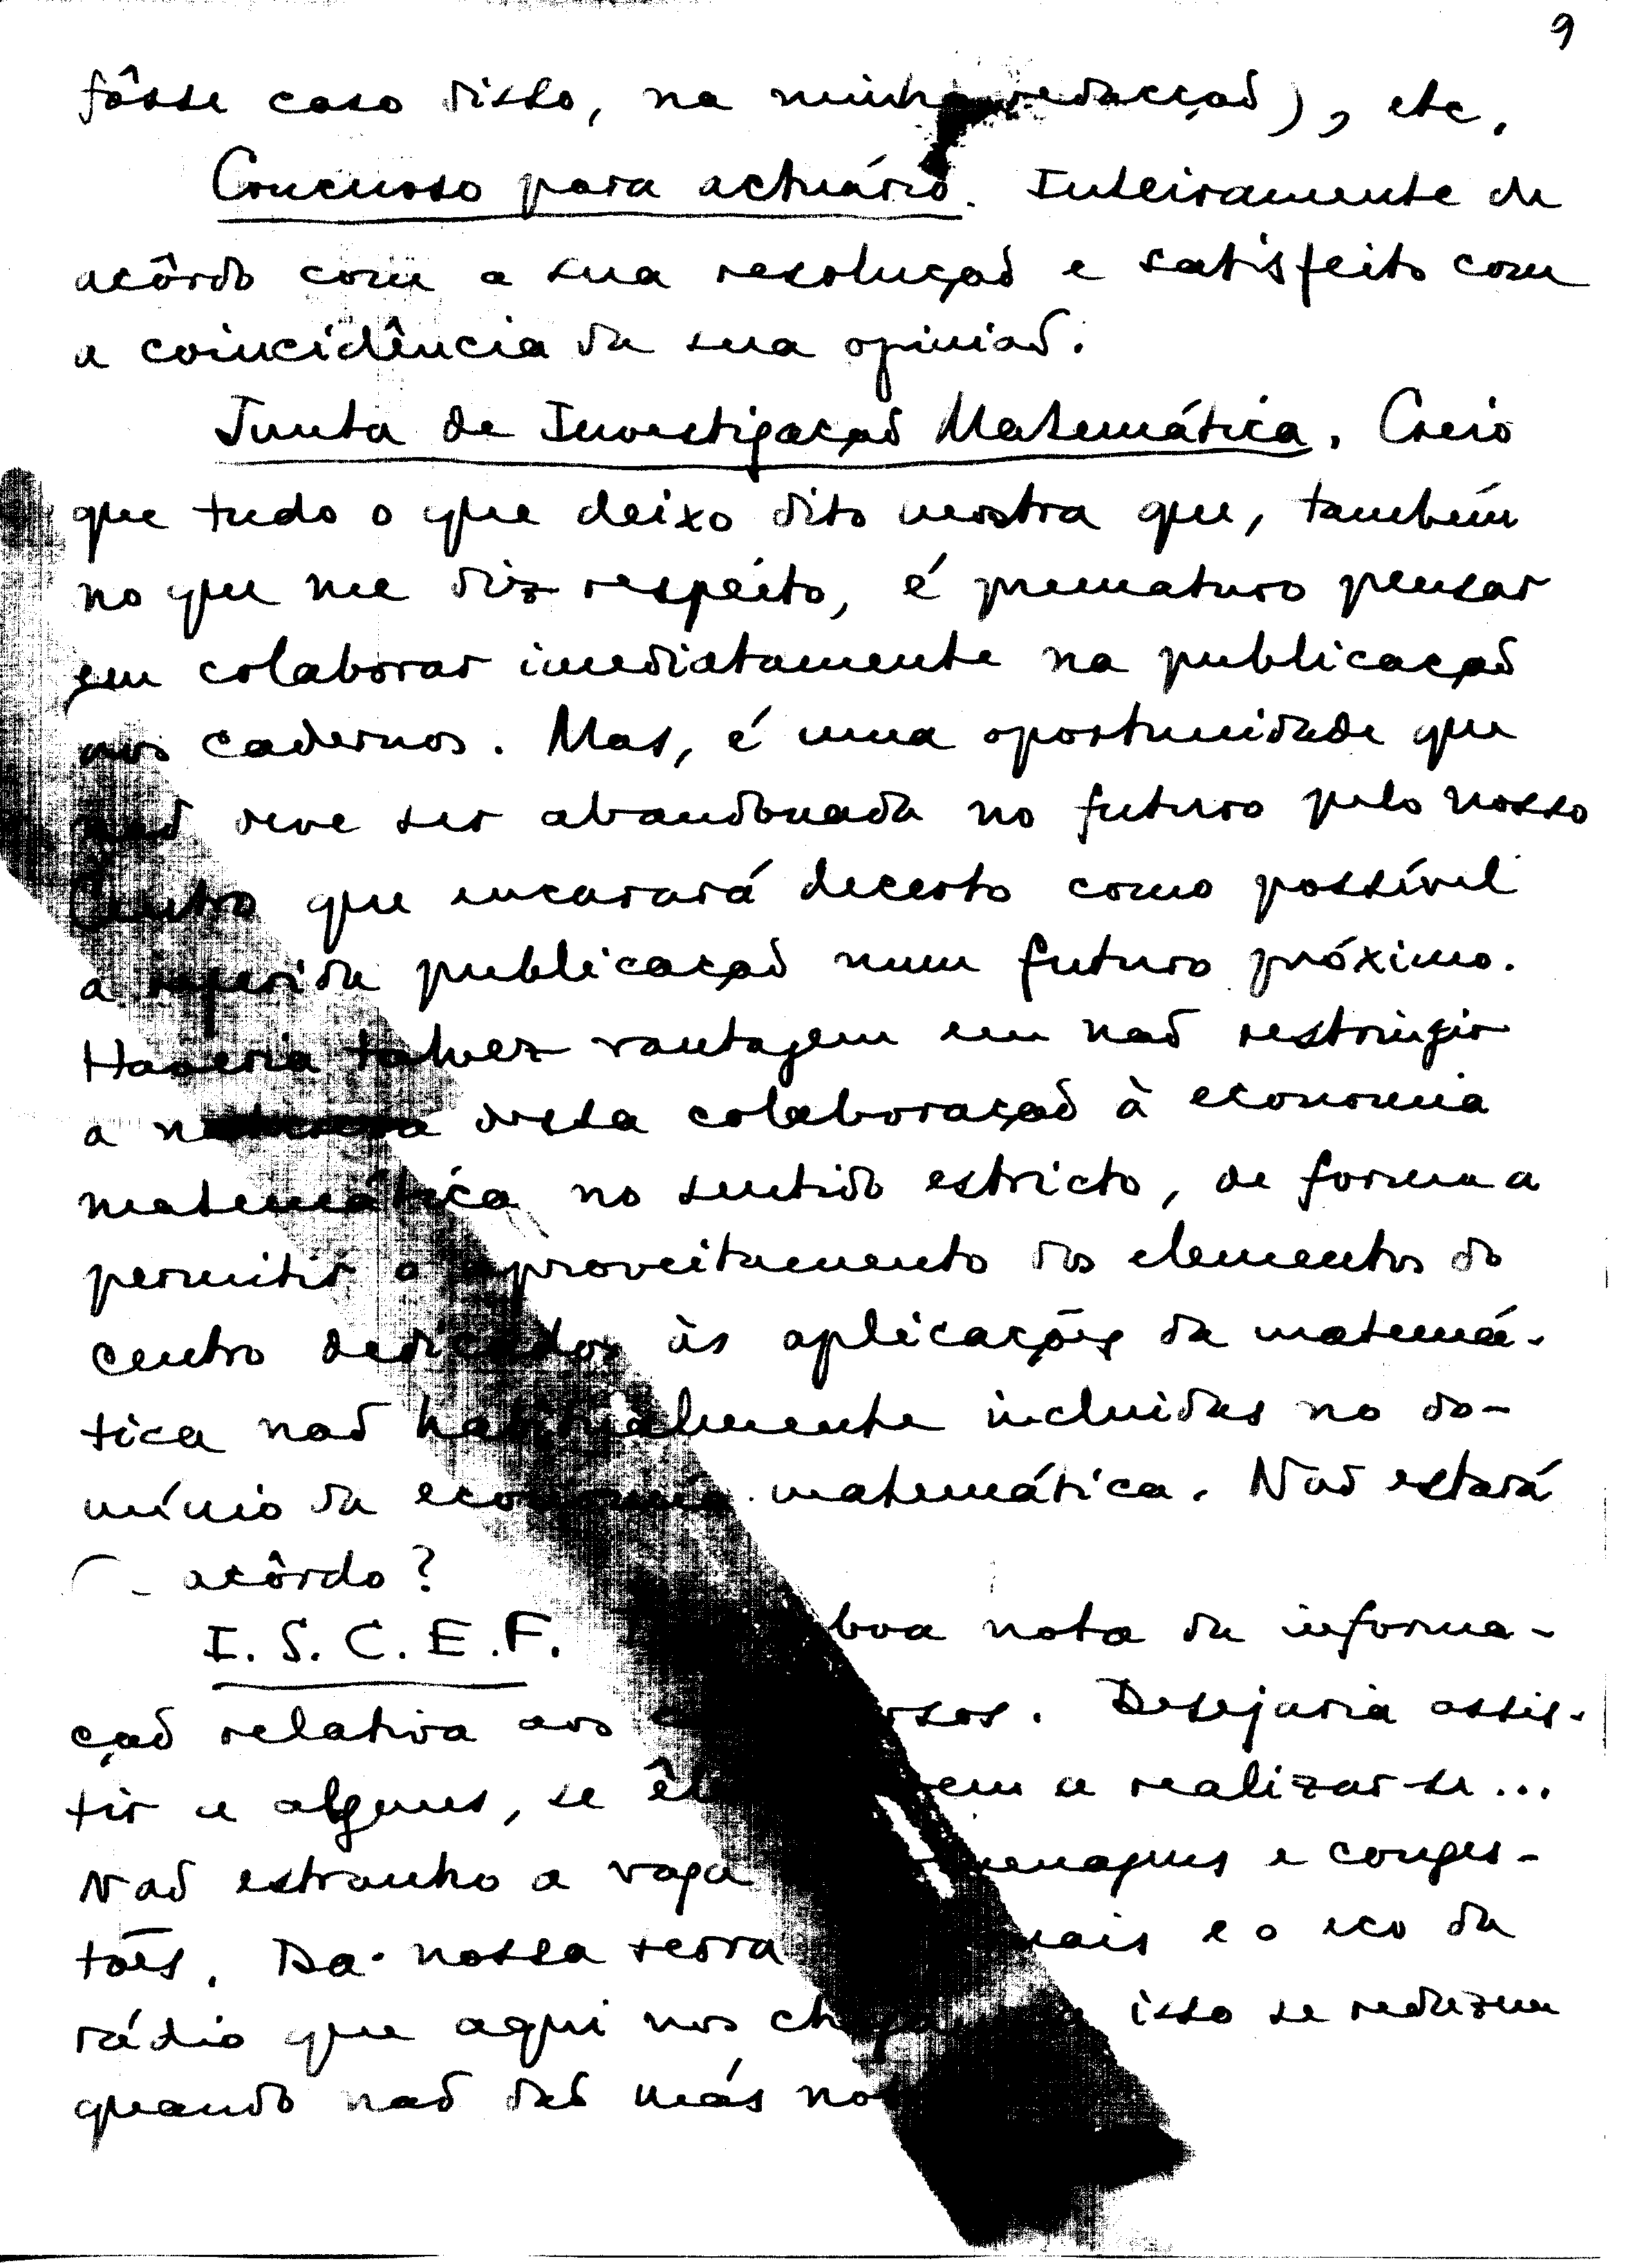 9
fôsse caso disso, na minha redacção), etc.
Concurso para actuário. Inteiramente de
acôrdo com a sua resolução e satisfeito com
a coincidência da sua opinião.
Junta de Investigação Matemática. Creio
que tudo o que deixo dito mostra que, também
no que me diz respeito, é prematuro pensar
em colaborar imediatamente na publicação
nos cadernos. Mas, é uma oportunidade que
não deve ser abandonada no futuro pelo nosso
Centro que encarará decerto como possível
a referida publicação num futuro próximo.
Haveria talvez vantagem em não restringir
a natureza dessa colaboração à economia
matemática no sentido estricto, de forma a
permitir o aproveitamento dos elementos do
centro dedicados às aplicações da matemá-
tica não habitualmente incluidas no do-
mínio da economia matemática. Não estará
acôrdo?
I. S. C. E. F. boa nota da informa-
ção relativa aos Desejaria assis-
tir a alguns, se a realizar-se...
Não estranho a vaga e conges-
tões. Da nossa terra e o eco da
rádio que aqui nos isso se reduzem
quando não dão más